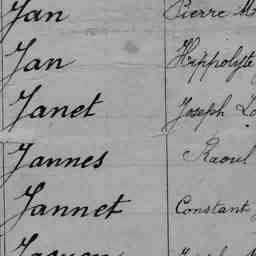 Jan Pierre M
Jan Hippolyte
Janet Joseph
Jannes Raoul
Jannet Constant